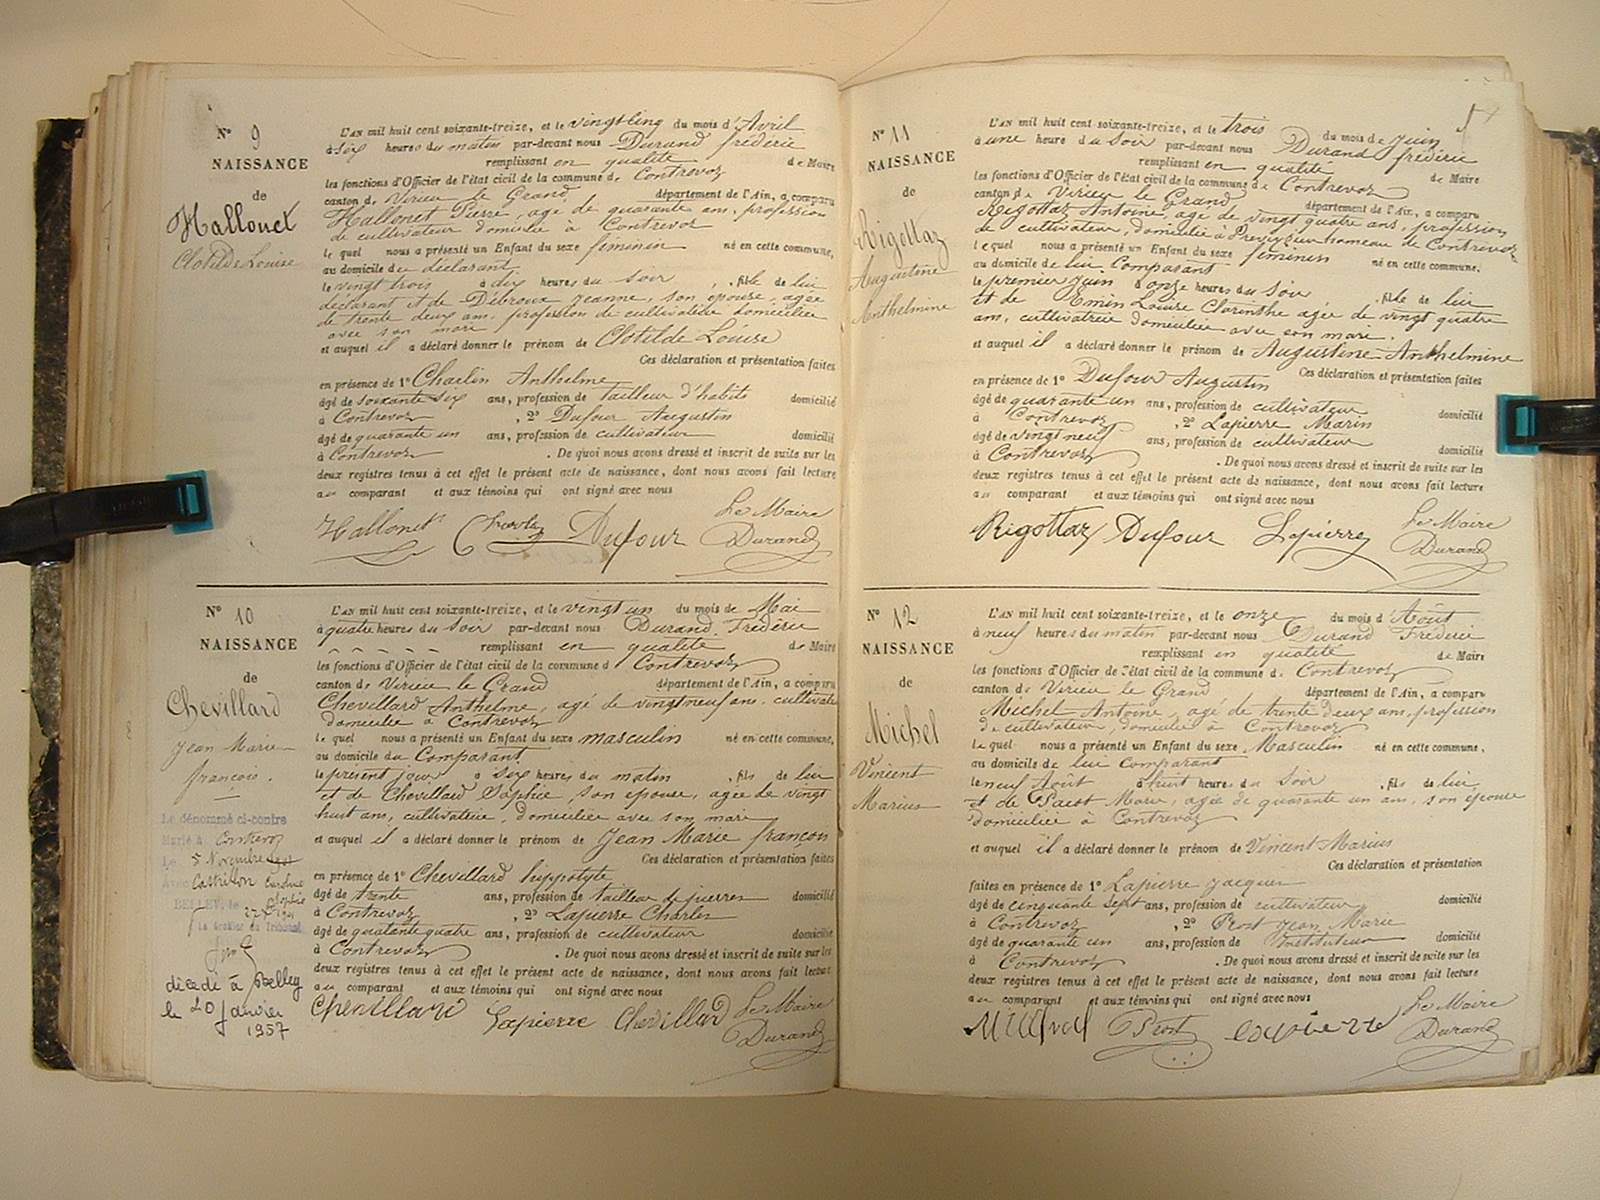 N° 9
NAISSANCE
de
Hallonet
Clotilde Louise
L'AN mil huit cent soixante-treize, et le vingt cinq du mois d'Avril
à six heures du matin par-devant nous Durand frédéric
remplissant en qualité de Maire
les fonctions d'Officier de l'état civil de la commune de Contrevoz
canton de Virieu le Grand département de l'Ain, a comparu
Hallonet Pierre, age de quarante ans, profession
de cultivateur domicilié à Contrevoz
le quel nous a présenté un Enfant du sexe féminin né en cette commune,
au domicile du déclarant.
le vingt trois à dix heures du soir , fille de lui
déclarant et de Débroux Jeanne, son épouse, agée
de trente deux ans, profession de cultivatrice domiciliée
avec son mari
et auquel il a déclaré donner le prénom de Clotilde Louise
Ces déclaration et présentation faites
en présence de 1° Charlin Anthelme
âgé de soixante six ans, profession de tailleur d'habits domicilié
à Contrevoz , 2° Dufour Augustin
âgé de quarante un ans, profession de cultivateur domicilié
à Contrevoz . De quoi nous avons dressé et inscrit de suite sur les
deux registres tenus à cet effet le présent acte de naissance, dont nous avons fait lecture
au comparant et aux témoins qui ont signé avec nous
Hallonet Dufour Le Maire
Durand
N° 10
NAISSANCE
de
Chevillard
Jean Marie
françois.
Le dénommé ci-contre
Marié à Contrevoz
Le 5 Novembre 1901
Avec Castrillon
Sophie
BELLEY, le
Le Greffier du Tribunal
décédé à Belley
le 20 Janvier
1957
L'AN mil huit cent soixante-treize, et le vingt un du mois de Mai
à quatre heures du soir par-devant nous Durand Frédéric
remplissant en qualité de Maire
les fonctions d'Officier de l'état civil de la commune d Contrevoz
canton de Virieu le Grand département de l'Ain, a comparu
Chevillard Anthelme, agé de vingt neuf ans, cultivateur
domicilié à Contrevoz
le quel nous a présenté un Enfant du sexe masculin né en cette commune,
au domicile du Comparant
le présent jour à six heures du matin , fils de lui
et de Chevillard Sophie, son épouse, agée de vingt
huit ans, cultivatrice, domiciliée avec son mari
et auquel il a déclaré donner le prénom de Jean Marie françois
Ces déclaration et présentation faites
en présence de 1° Chevillard hippolyte
âgé de trente ans, profession de tailleur de pierres domicilié
à Contrevoz , 2° Lapierre Charles
âgé de quatante quatre ans, profession de cultivateur domicilié
à Contrevoz . De quoi nous avons dressé et inscrit de suite sur les
deux registres tenus à cet effet le présent acte de naissance, dont nous avons fait lecture
au comparant et aux témoins qui ont signé avec nous
Chevillard Lapierre Chevillard Le Maire
Durand
N° 11
NAISSANCE
de
Rigottaz
Augustine
Anthelmine
L'AN mil huit cent soixante-treize, et le trois du mois de Juin
à une heure du soir par-devant nous Durand frédéric
remplissant en qualité de Maire
les fonctions d'Officier de l'état civil de la commune de Contrevoz
canton de Virieu le Grand département de l'Ain, a comparu
Rigottaz Antoine, agé de vingt quatre ans, profession
de cultivateur, domicilié à hameau de Contrevoz
lequel nous a présenté un Enfant du sexe féminin né en cette commune.
au domicile de lui Comparant
le premier juin à onze heures du soir , fille de lui
et de Emin Louise Clarinthe agée de vingt quatre
ans, cultivatrice domiciliée avec son mari.
et auquel il a déclaré donner le prénom de Augustine Anthelmine
Ces déclaration et présentation faites
en présence de 1° Dufour Augustin
âgé de quarante un ans, profession de cultivateur domicilié
à Contrevoz , 2° Lapierre Marin
âgé de vingt neuf ans, profession de cultivateur domicilié
à Contrevoz . De quoi nous avons dressé et inscrit de suite sur les
deux registres tenus à cet effet le présent acte de naissance, dont nous avons fait lecture
au comparant et aux témoins qui ont signé avec nous
Rigottaz Dufour Lapierre Le Maire
Durand
N° 12
NAISSANCE
de
Michel
Vincent
Marius
L'AN mil huit cent soixante-treize, et le onze du mois d'Août
à neuf heures du matin par-devant nous Durand Frédéric
remplissant en qualité de Maire
les fonctions d'Officier de l'état civil de la commune de Contrevoz
canton de Virieu le Grand département de l'Ain, a comparu
Michel Antoine, agé de trente deux ans, profession
de cultivateur, domicilié à Contrevoz
le quel nous a présenté un Enfant du sexe Masculin né en cette commune.
au domicile de lui comparant
le neuf Août à huit heures du soir , fils de lui
et de agée de quarante un ans, son épouse
domiciliée à Contrevoz
et auquel il a déclaré donner le prénom de Vincent Marius
Ces déclaration et présentation
faites en présence de 1° Lapierre Jacques
âgé de cinquante sept ans, profession de cultivateur domicilié
à Contrevoz , 2° Prost Jean Marie
âgé de quarante un ans, profession de Instituteur domicilié
à Contrevoz . De quoi nous avons dressé et inscrit de suite sur les
deux registres tenus à cet effet le présent acte de naissance, dont nous avons fait lecture
au comparant et aux témoins qui ont signé avec nous
Michel Prost Lapierre Le Maire
Durand